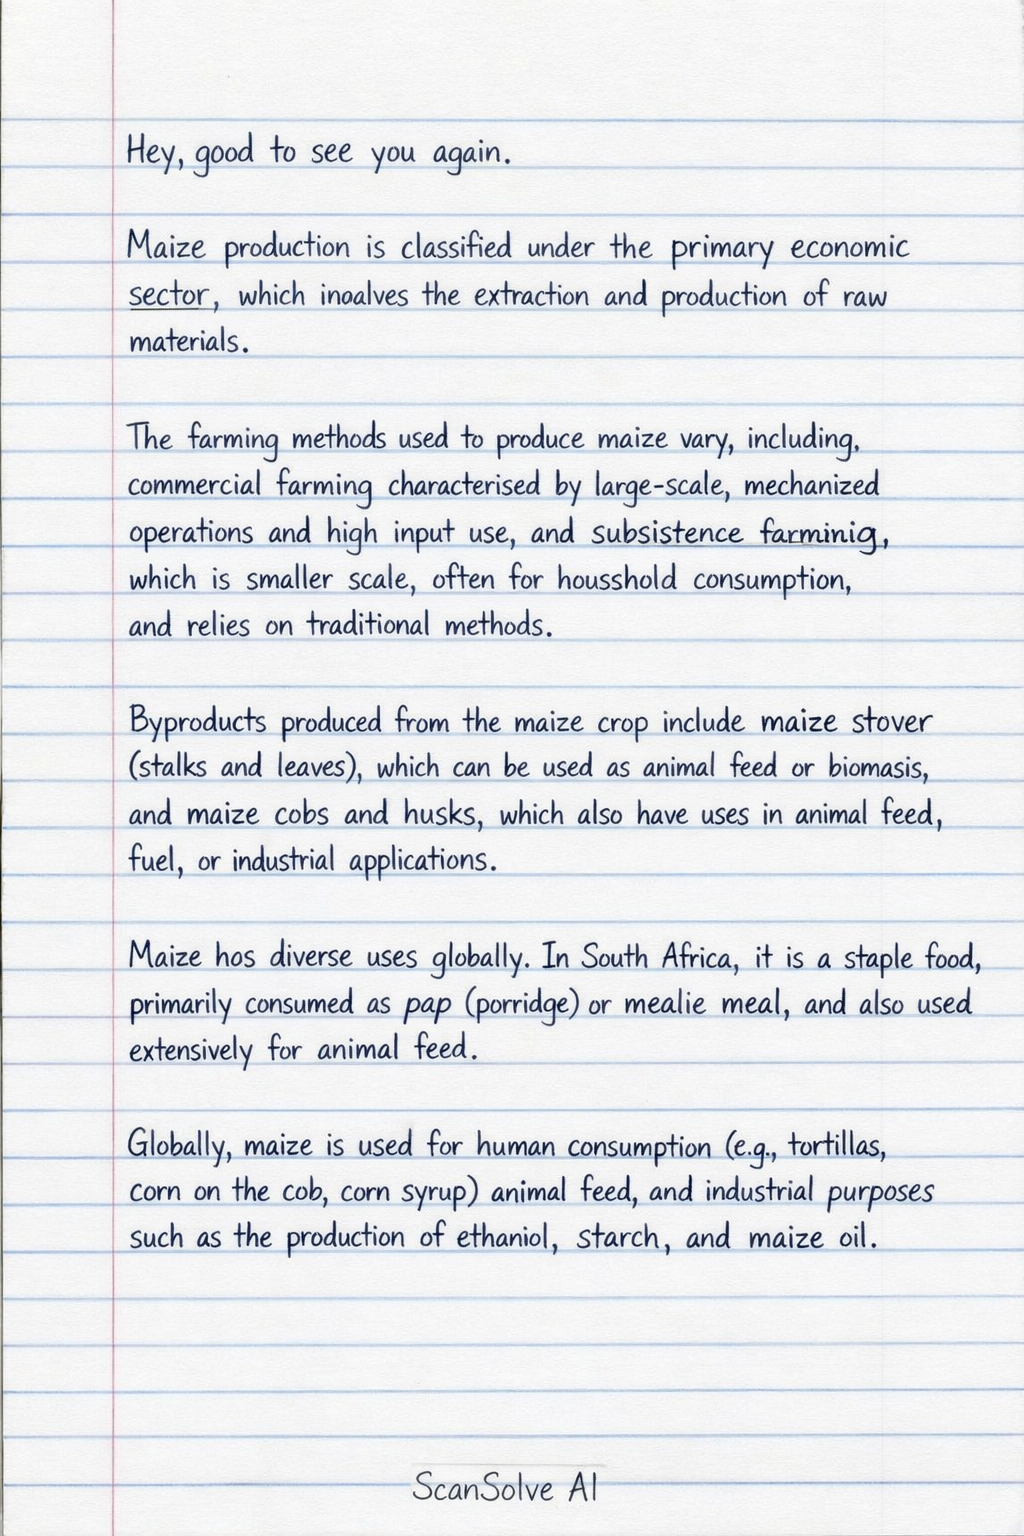 Hey, good to see you again.
Maize production is classified under the primary economic
sector, which inoalves the extraction and production of raw
materials.
The farming methods used to produce maize vary, including,
commercial farming characterised by large-scale, mechanized
operations and high input use, and subsistence farminig,
which is smaller scale, often for housshold consumption,
and relies on traditional methods.
Byproducts produced from the maize crop include maize stover
(stalks and leaves), which can be used as animal feed or biomasis,
and maize cobs and husks, which also have uses in animal feed,
fuel, or industrial applications.
Maize hos diverse uses globally. In South Africa, it is a staple food,
primarily consumed as pap (porridge) or mealie meal, and also used
extensively for animal feed.
Globally, maize is used for human consumption (e.g., tortillas,
corn on the cob, corn syrup) animal feed, and industrial purposes
such as the production of ethaniol, starch, and maize oil.
ScanSolve AI